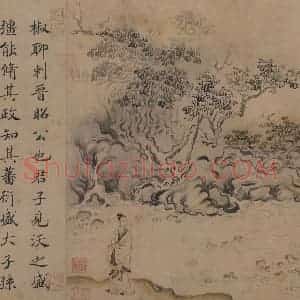 椒聊刺晉昭公也君子見沃之盛
彊能脩其政知其蕃衍盛大子孫
Shufaziliao.COM